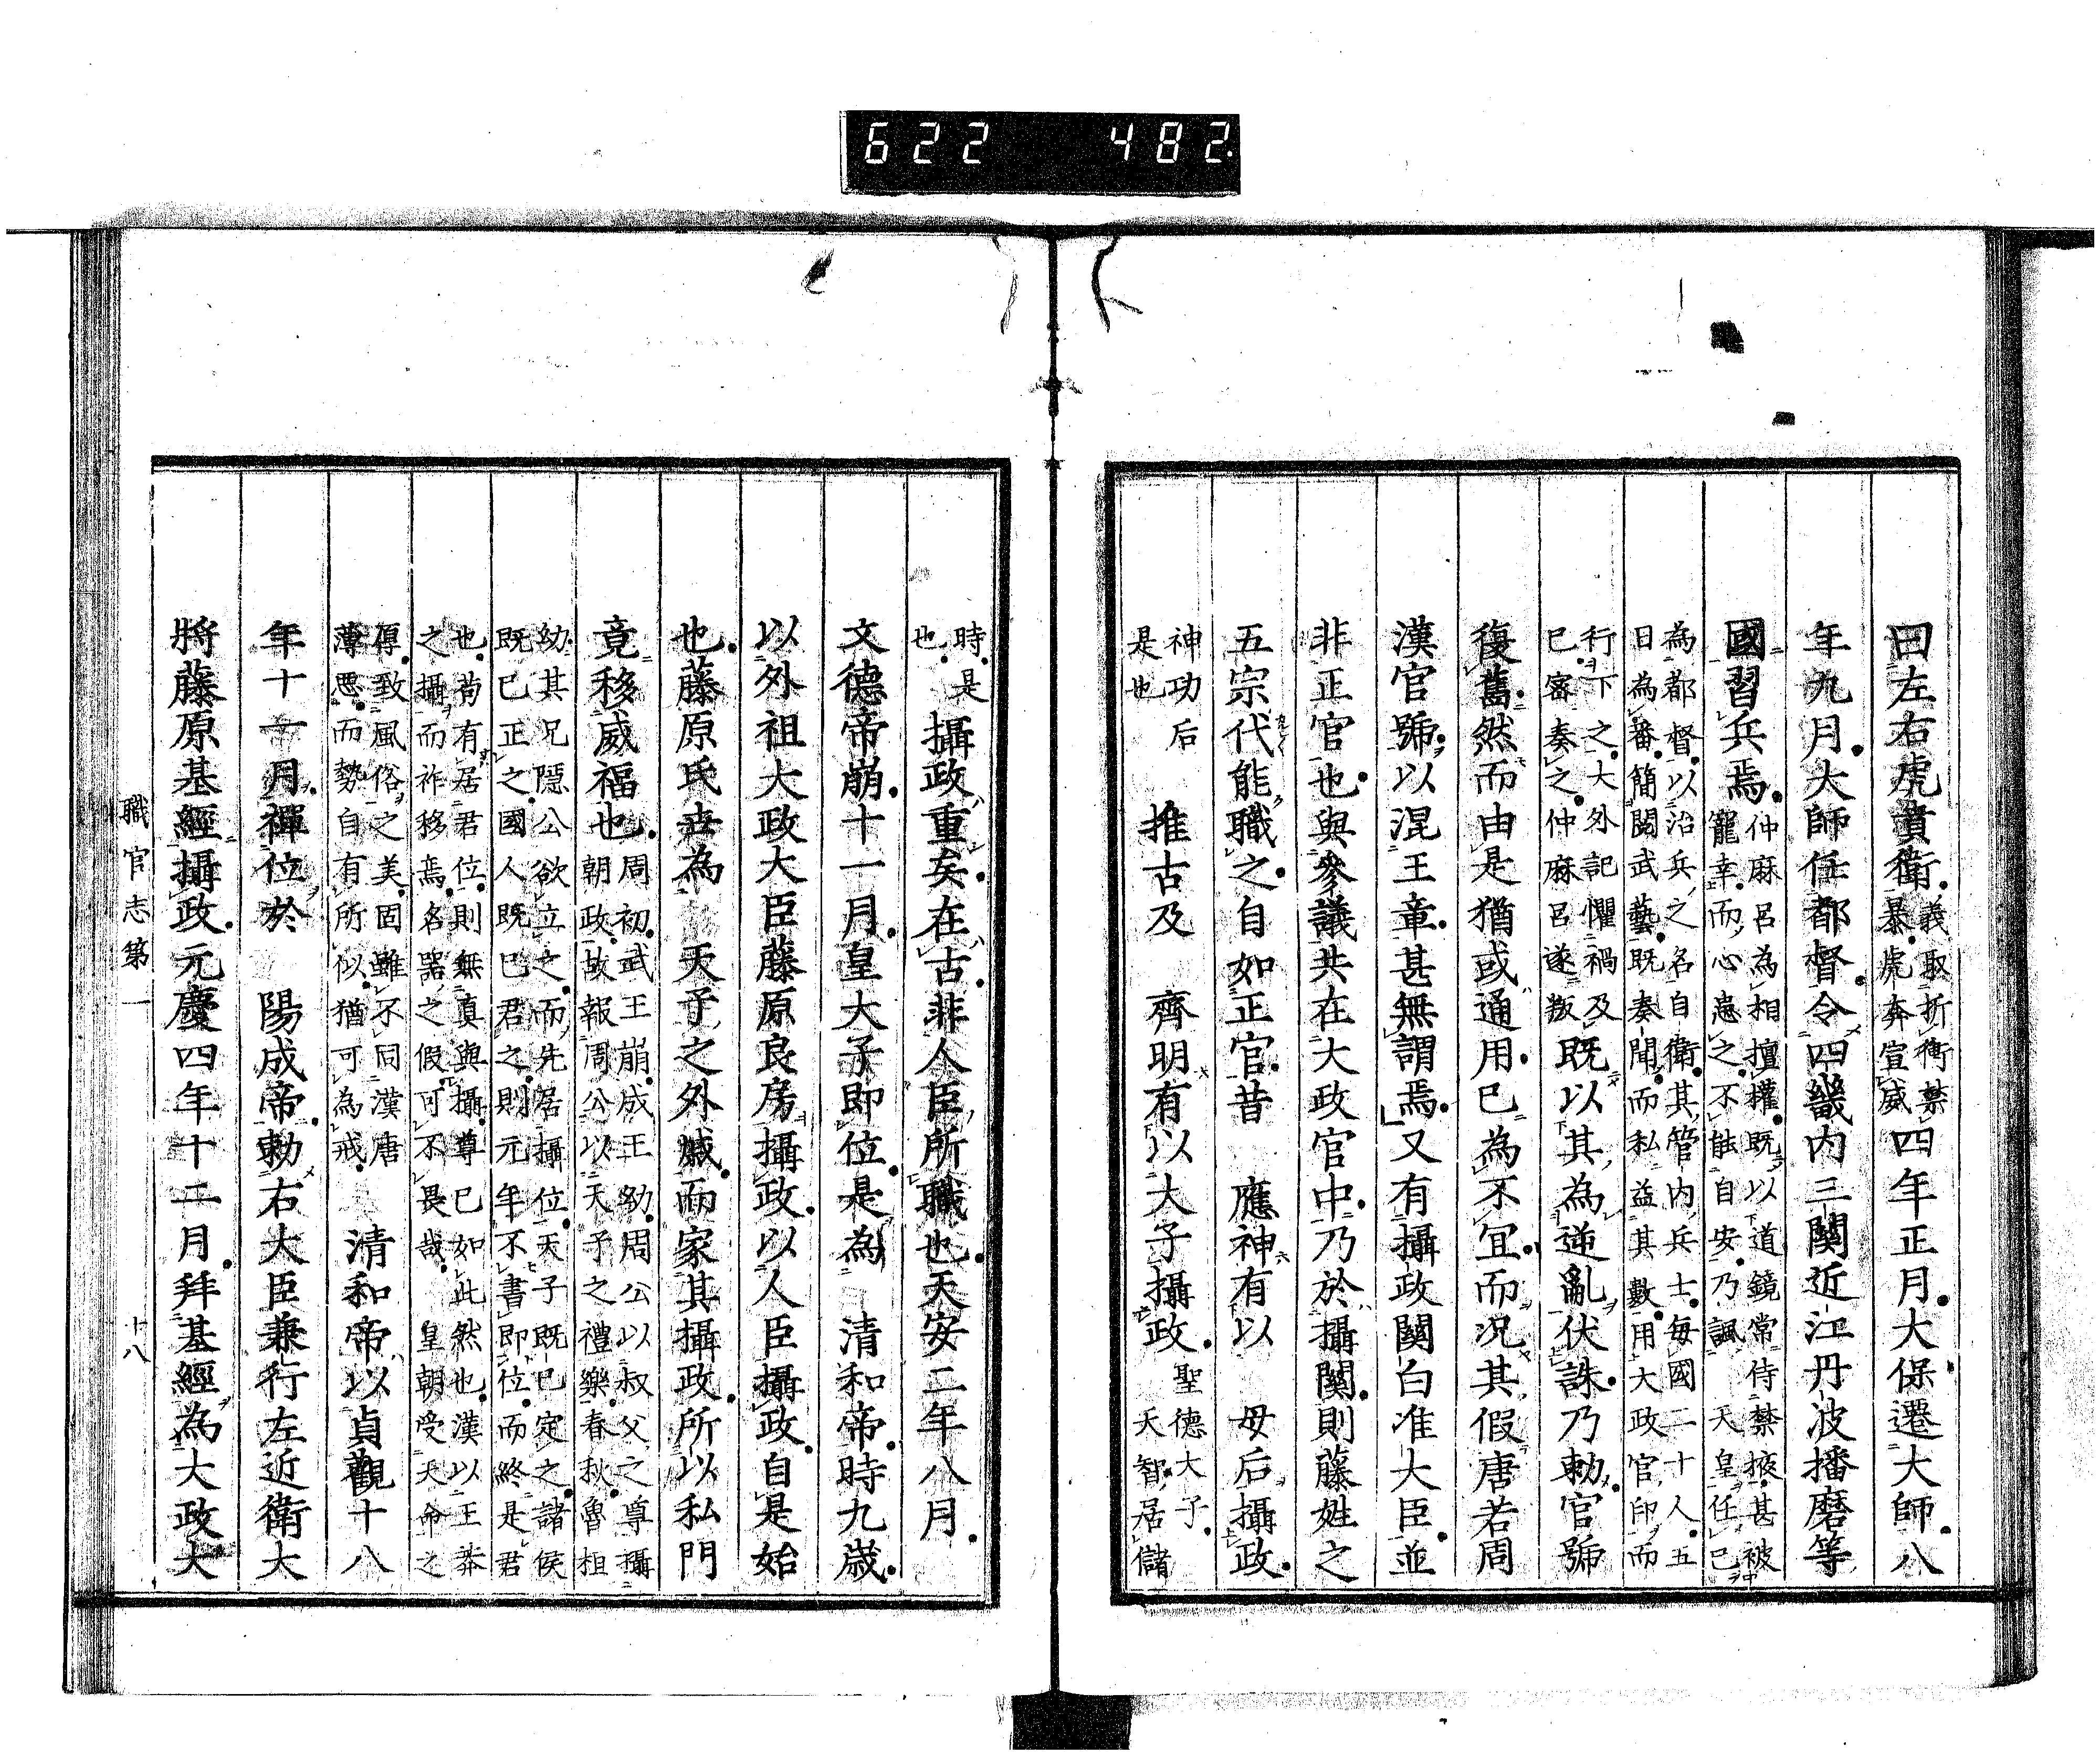 622 482
曰左右虎賁衛義取折衝禁暴虎奔宣威四年正月大保遷大師八
年九月大師任都督令四畿內三関近江丹波播磨等
國習兵焉仲麻呂為相擅權既以道鏡常侍禁掖甚被寵幸而心患之不能自安乃諷 天皇任已
為都督以治兵之名自衛其管內兵士每國二十人五日為番簡閱武藝既奏聞而私益其數用大政官印而
行下之大外記懼禍及已密奏之仲麻呂遂叛既以其為逆亂伏誅乃勅官號
復舊然而由是猶或通用已為不宜而況其假唐若周
漢官號以混王章甚無謂焉又有攝政関白准大臣並
非正官也與參議共在大政官中乃於攝関則藤姓之
五宗代能職之自如正官昔 應神有以 母后攝政
神功后是也 推古及 齊明有以大子攝政聖德大子天智居儲
時是也 攝政重矣在古非人臣所職也天安二年八月
文德帝崩十一月皇大子即位是為 清和帝時九歲
以外祖大政大臣藤原良房攝政以人臣攝政自是始
也藤原氏世為 天子之外戚而家其攝政所以私門
竟移威福也周初武王崩成王幼周公以叔父之尊攝朝政故報周公以天子之禮樂春秋魯桓
幼其兄隱公欲立之而先居攝位天子既已定之諸侯既已正之國人既已君之則元年不書即位而終是君
也苟有居君位則無真與攝尊已如此然也漢以王莽之攝而祚移焉名器之假可不畏哉 皇朝受天命之
厚致風俗之美固雖不同漢唐薄惡而勢自有所似猶可為戒 清和帝以貞觀十八
年十一月禪位於 陽成帝勅右大臣兼行左近衛大
將藤原基經攝政元慶四年十二月拜基經為大政大
職官志第一 十八